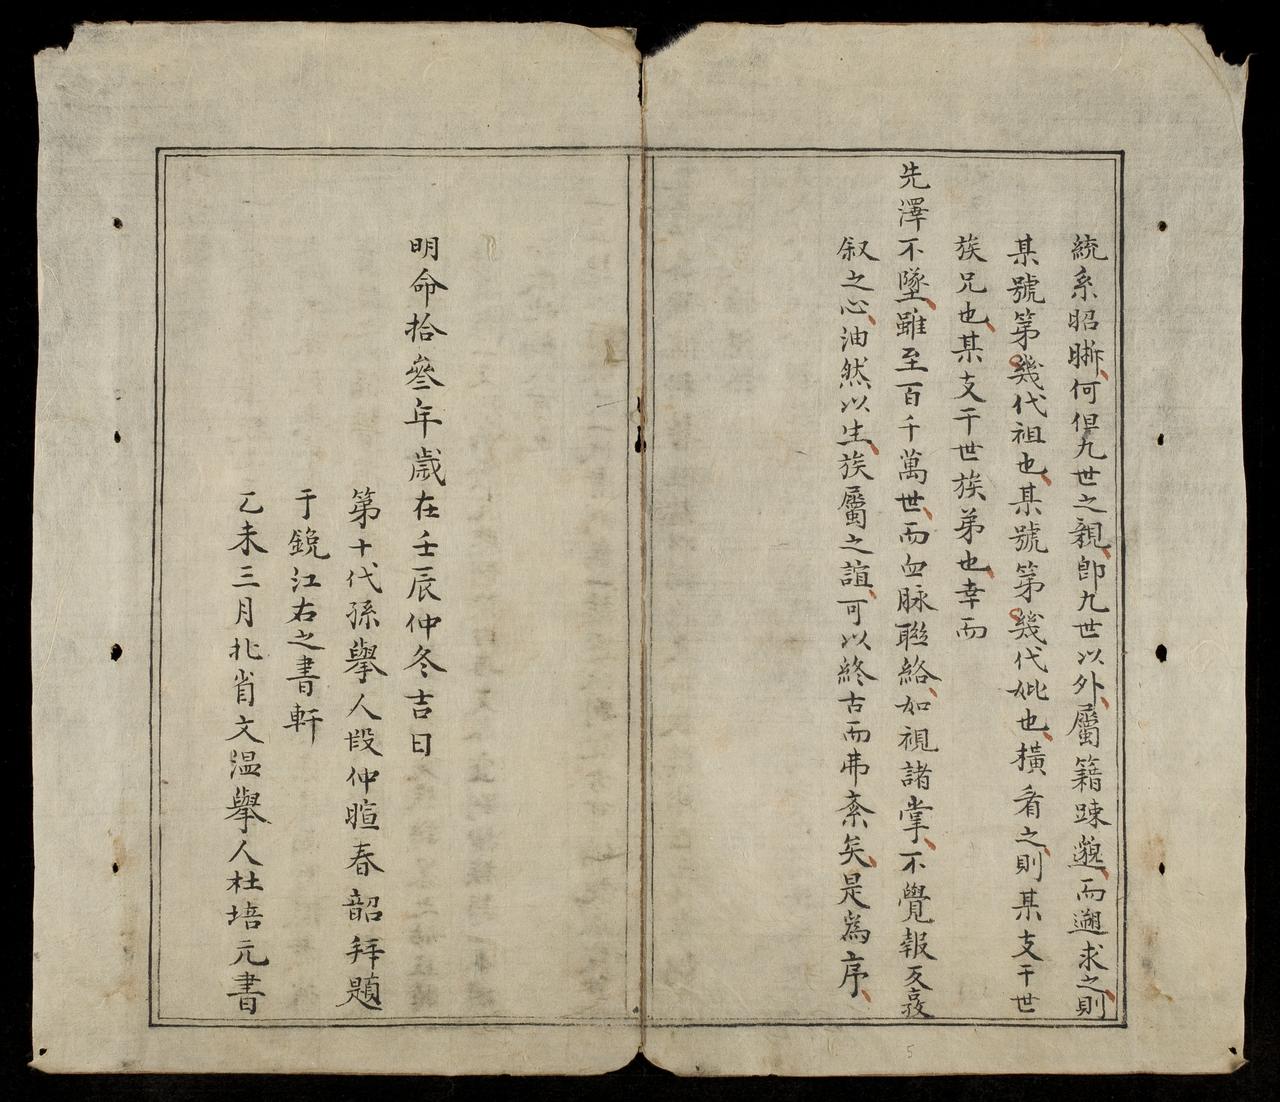 統系昭晰何但九世之親卽九世以外屬籍踈邈而遡求之則
某號第幾代祖也某號第幾代妣也橫看之則某支干世
族兄也某支干世族弟也幸而
先澤不墜雖至百千萬世而血脉聯絡如視諸掌不覺報反敦
叙之心油然以生族屬之誼可以終古而弗紊矣是爲序
明命拾叄年歲在壬辰仲冬吉日
第十代孫擧人段仲暄春韶拜題
于銳江右之書軒
乙未三月北省文溫擧人杜培元書
5